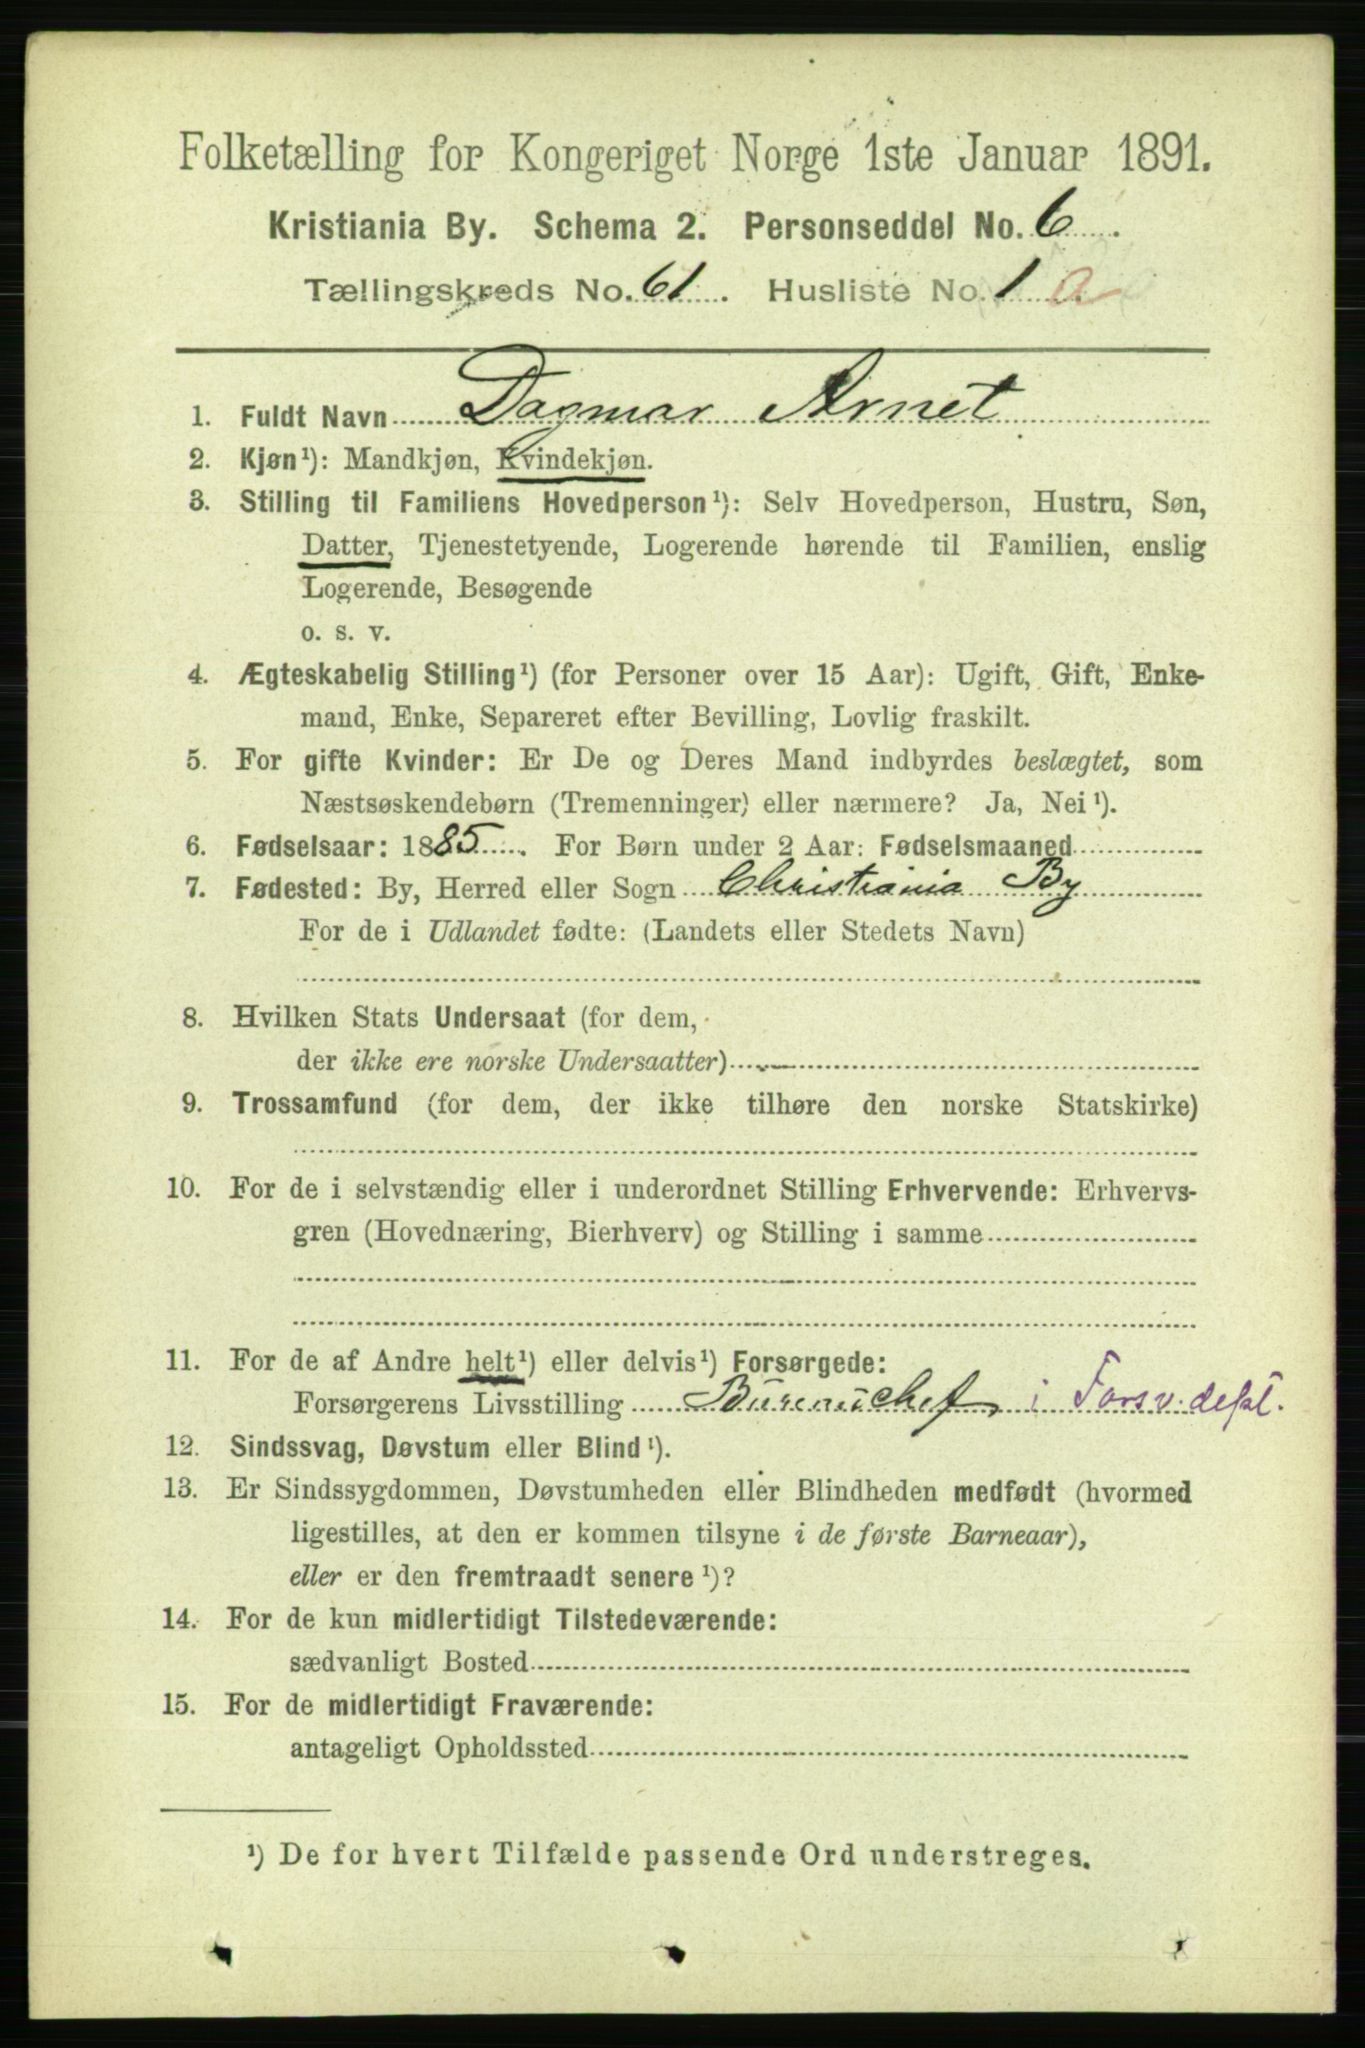 Folketælling for Kongeriget Norge 1ste Januar 1891.
Kristiania By. Schema 2. Personseddel No. 6.
Tællingskreds No. 61. Husliste No. 1 a
1. Fuldt Navn Dagmar Arnet
2. Kjøn¹): Mandkjøn, Kvindekjøn.
3. Stilling til Familiens Hovedperson¹): Selv Hovedperson, Hustru, Søn,
Datter, Tjenestetyende, Logerende hørende til Familien, enslig
Logerende, Besøgende
o. s. v.
4. Ægteskabelig Stilling¹) (for Personer over 15 Aar): Ugift, Gift, Enke-
mand, Enke, Separeret efter Bevilling, Lovlig fraskilt.
5. For gifte Kvinder: Er De og Deres Mand indbyrdes beslægtet, som
Næstsøskendebørn (Tremenninger) eller nærmere? Ja, Nei¹).
6. Fødselsaar: 1885. For Børn under 2 Aar: Fødselsmaaned
7. Fødested: By, Herred eller Sogn Christiania By
For de i Udlandet fødte: (Landets eller Stedets Navn)
8. Hvilken Stats Undersaat (for dem,
der ikke ere norske Undersaatter)
9. Trossamfund (for dem, der ikke tilhøre den norske Statskirke)
10. For de i selvstændig eller i underordnet Stilling Erhvervende: Erhvervs-
gren (Hovednæring, Bierhverv) og Stilling i samme
11. For de af Andre helt¹) eller delvis¹) Forsørgede:
Forsørgerens Livsstilling Bureauchef i Forsv. dept.
12. Sindssvag, Døvstum eller Blind¹).
13. Er Sindssygdommen, Døvstumheden eller Blindheden medfødt (hvormed
ligestilles, at den er kommen tilsyne i de første Barneaar),
eller er den fremtraadt senere¹)?
14. For de kun midlertidigt Tilstedeværende:
sædvanligt Bosted
15. For de midlertidigt Fraværende:
antageligt Opholdssted
¹) De for hvert Tilfælde passende Ord understreges.